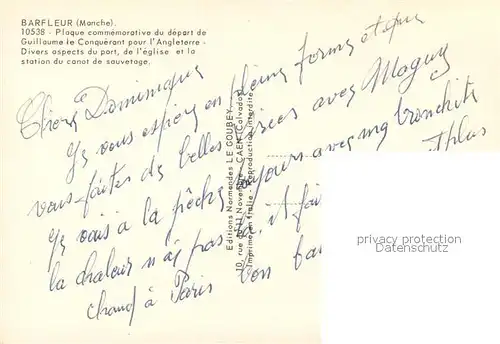 BARFLEUR (Manche).
10538 - Plaque commémorative du départ de
Guillaume le Conquérant pour l'Angleterre -
Divers aspects du port, de l'église et la
station du canot de sauvetage.
Chers Dominique
Je vous espère en pleine forme et que
vous faites de belles avec Maguy
Je vais à la pêche toujours avec ma bronchite
la chaleur n'a pas il fait
chaud à Paris bon
Editions Normandes LE GOUBEY
10, rue du 11 Novembre - CAEN (Calvados)
Imprimé en Italie - Reproduction interdite
privacy protection
Datenschutz